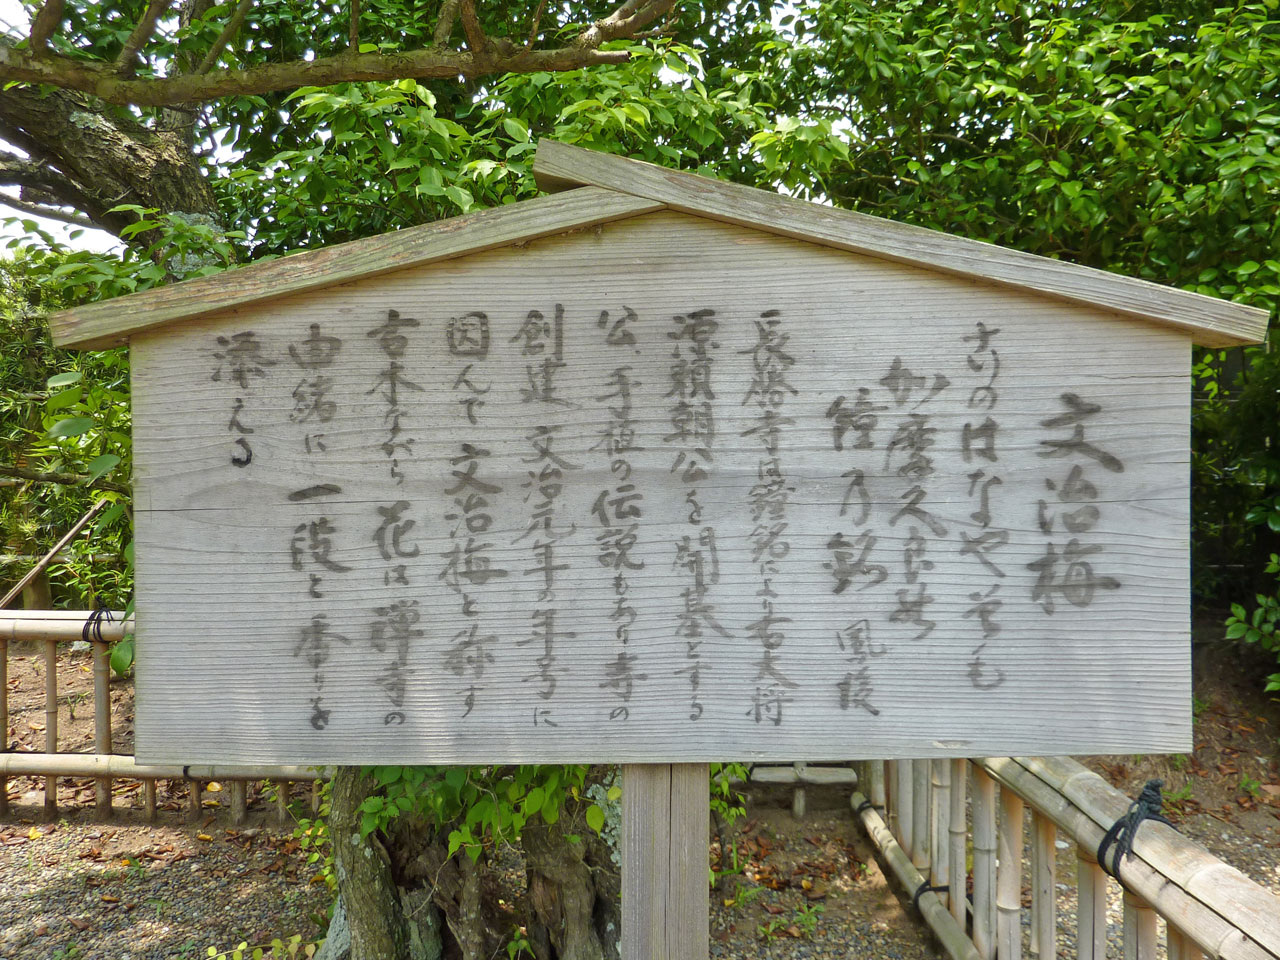 文治梅
のはなや も
加摩久良
鐘乃銘 風
長勝寺は鐘銘により右大将
源頼朝公を開基とする
公、手植の伝説もあり寺の
創建 文治元年の年号に
因んで 文治梅と称す
古木ながら 花は禅寺の
由緒に 一段と香りを
添える